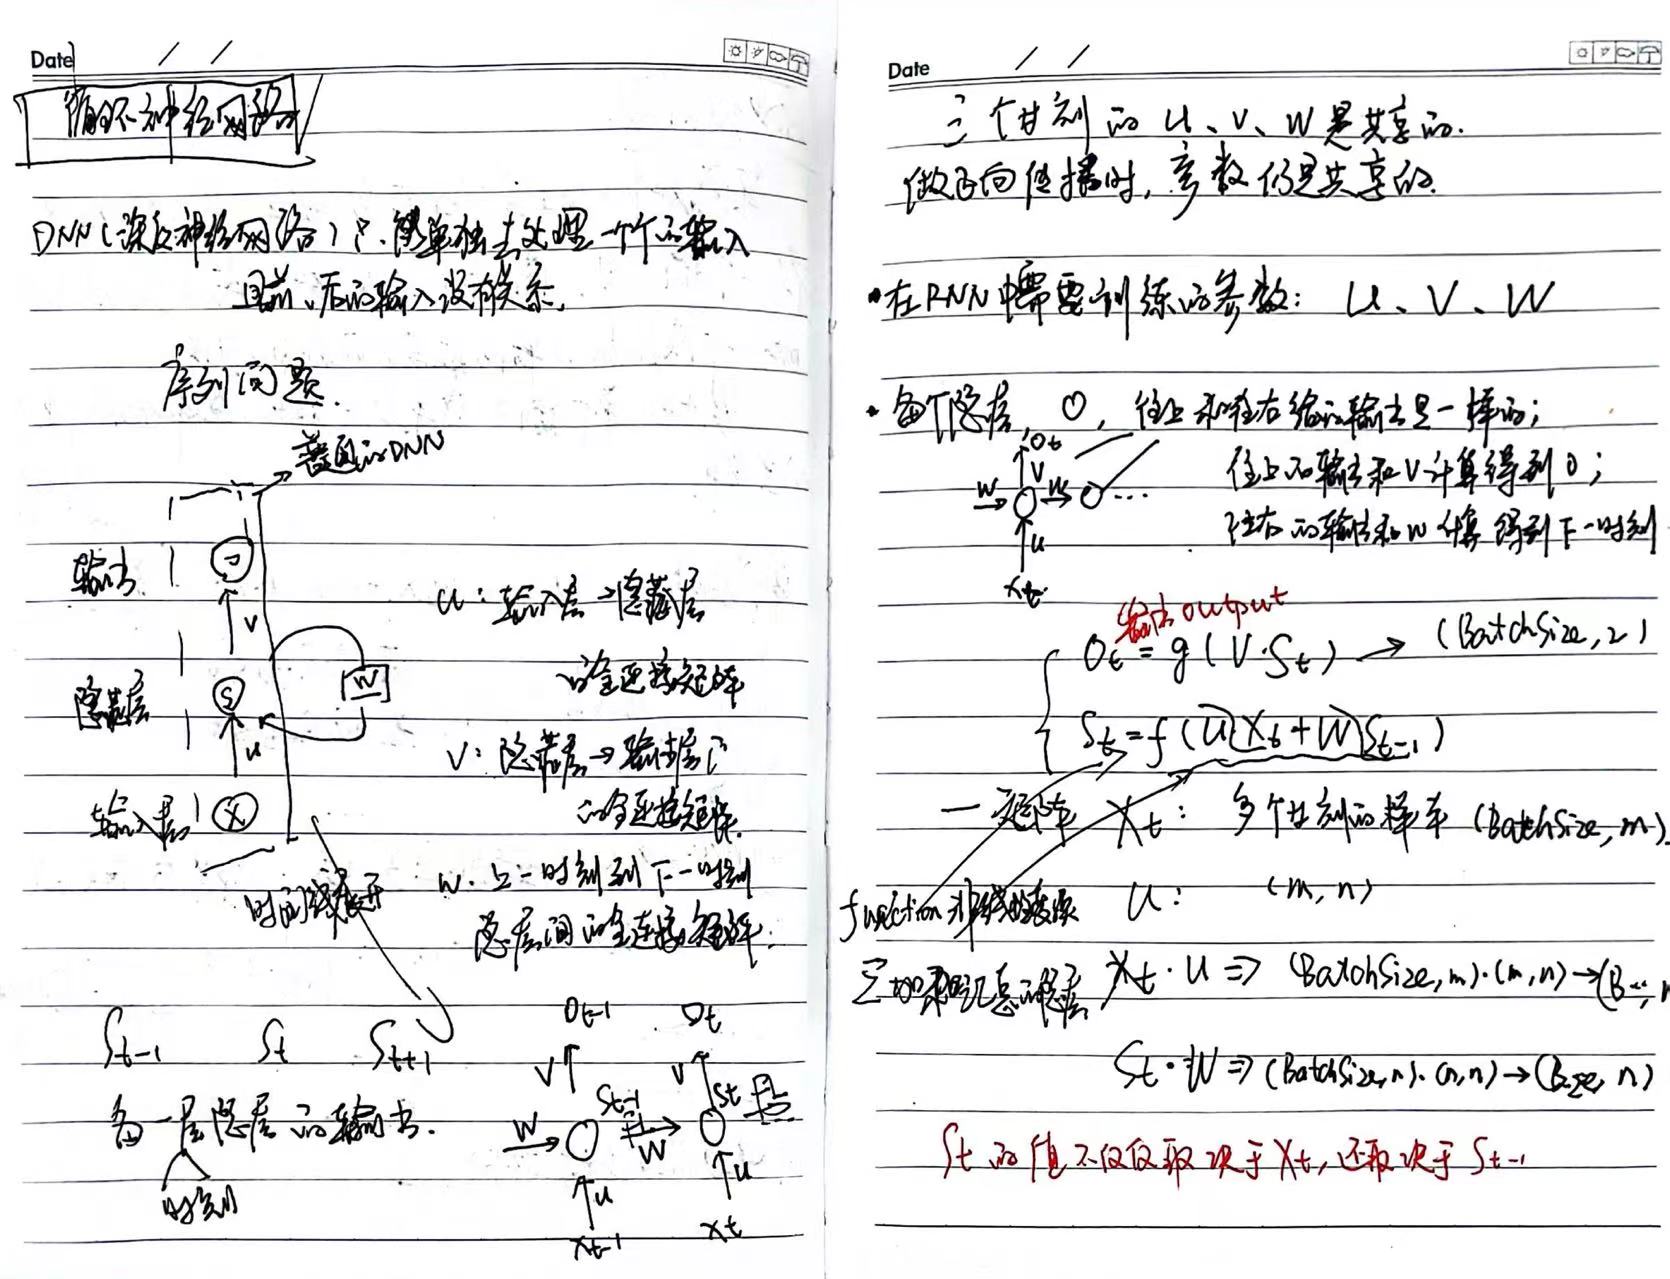 Date / /
循环神经网络
DNN(深度神经网络)只能单独去处理一个个的输入
且前、后的输入没有关系.
序列问题.
普通的DNN
输出
O
V
隐藏层
S
W
U
输入层
X
时间线展开
U:输入层→隐藏层
的全连接矩阵
V:隐藏层→输出层
的全连接矩阵.
W.上一时刻到下一时刻
隐层间的全连接矩阵.
St-1 St St+1
每一层隐层的输出.
时刻
Ot-1 Ot
V V
St-1 St
W W
U U
Xt-1 Xt
Date / /
三个时刻的U、V、W是共享的.
做反向传播时,参数仍是共享的.
·在RNN中需要训练的参数: U、V、W
·每个隐层,O,往上和往右给的输出是一样的;
往上的输出和V计算得到O;
往右的输出和W计算得到下一时刻
Ot
V
W W ...
U
Xt
输出output
Ot=g(V·St) → (BatchSize,2)
St=f(U Xt+W St-1)
一矩阵 Xt: 多个时刻的样本(BatchSize,m).
function非线性变换 U: (m,n)
Xt·U⇒(BatchSize,m)·(m,n)→(B…,n
St·W⇒(BatchSize,n)·(n,n)→(Bsize,n)
St的值不仅仅取决于Xt,还取决于St-1